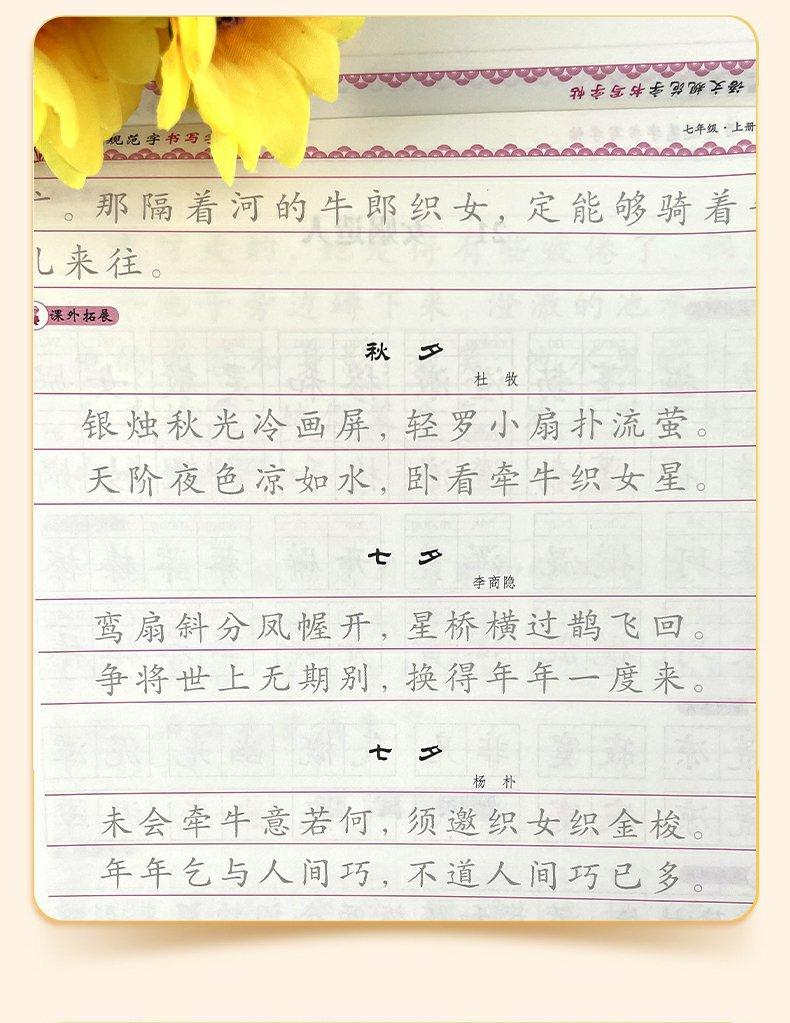 语文规范字书写字帖
规范字书写
七年级·上册
。那隔着河的牛郎织女,定能够骑着
儿来往。
课外拓展
秋 夕
杜 牧
银烛秋光冷画屏,轻罗小扇扑流萤。
天阶夜色凉如水,卧看牵牛织女星。
七 夕
李商隐
鸾扇斜分凤幄开,星桥横过鹊飞回。
争将世上无期别,换得年年一度来。
七 夕
杨 朴
未会牵牛意若何,须邀织女织金梭。
年年乞与人间巧,不道人间巧已多。